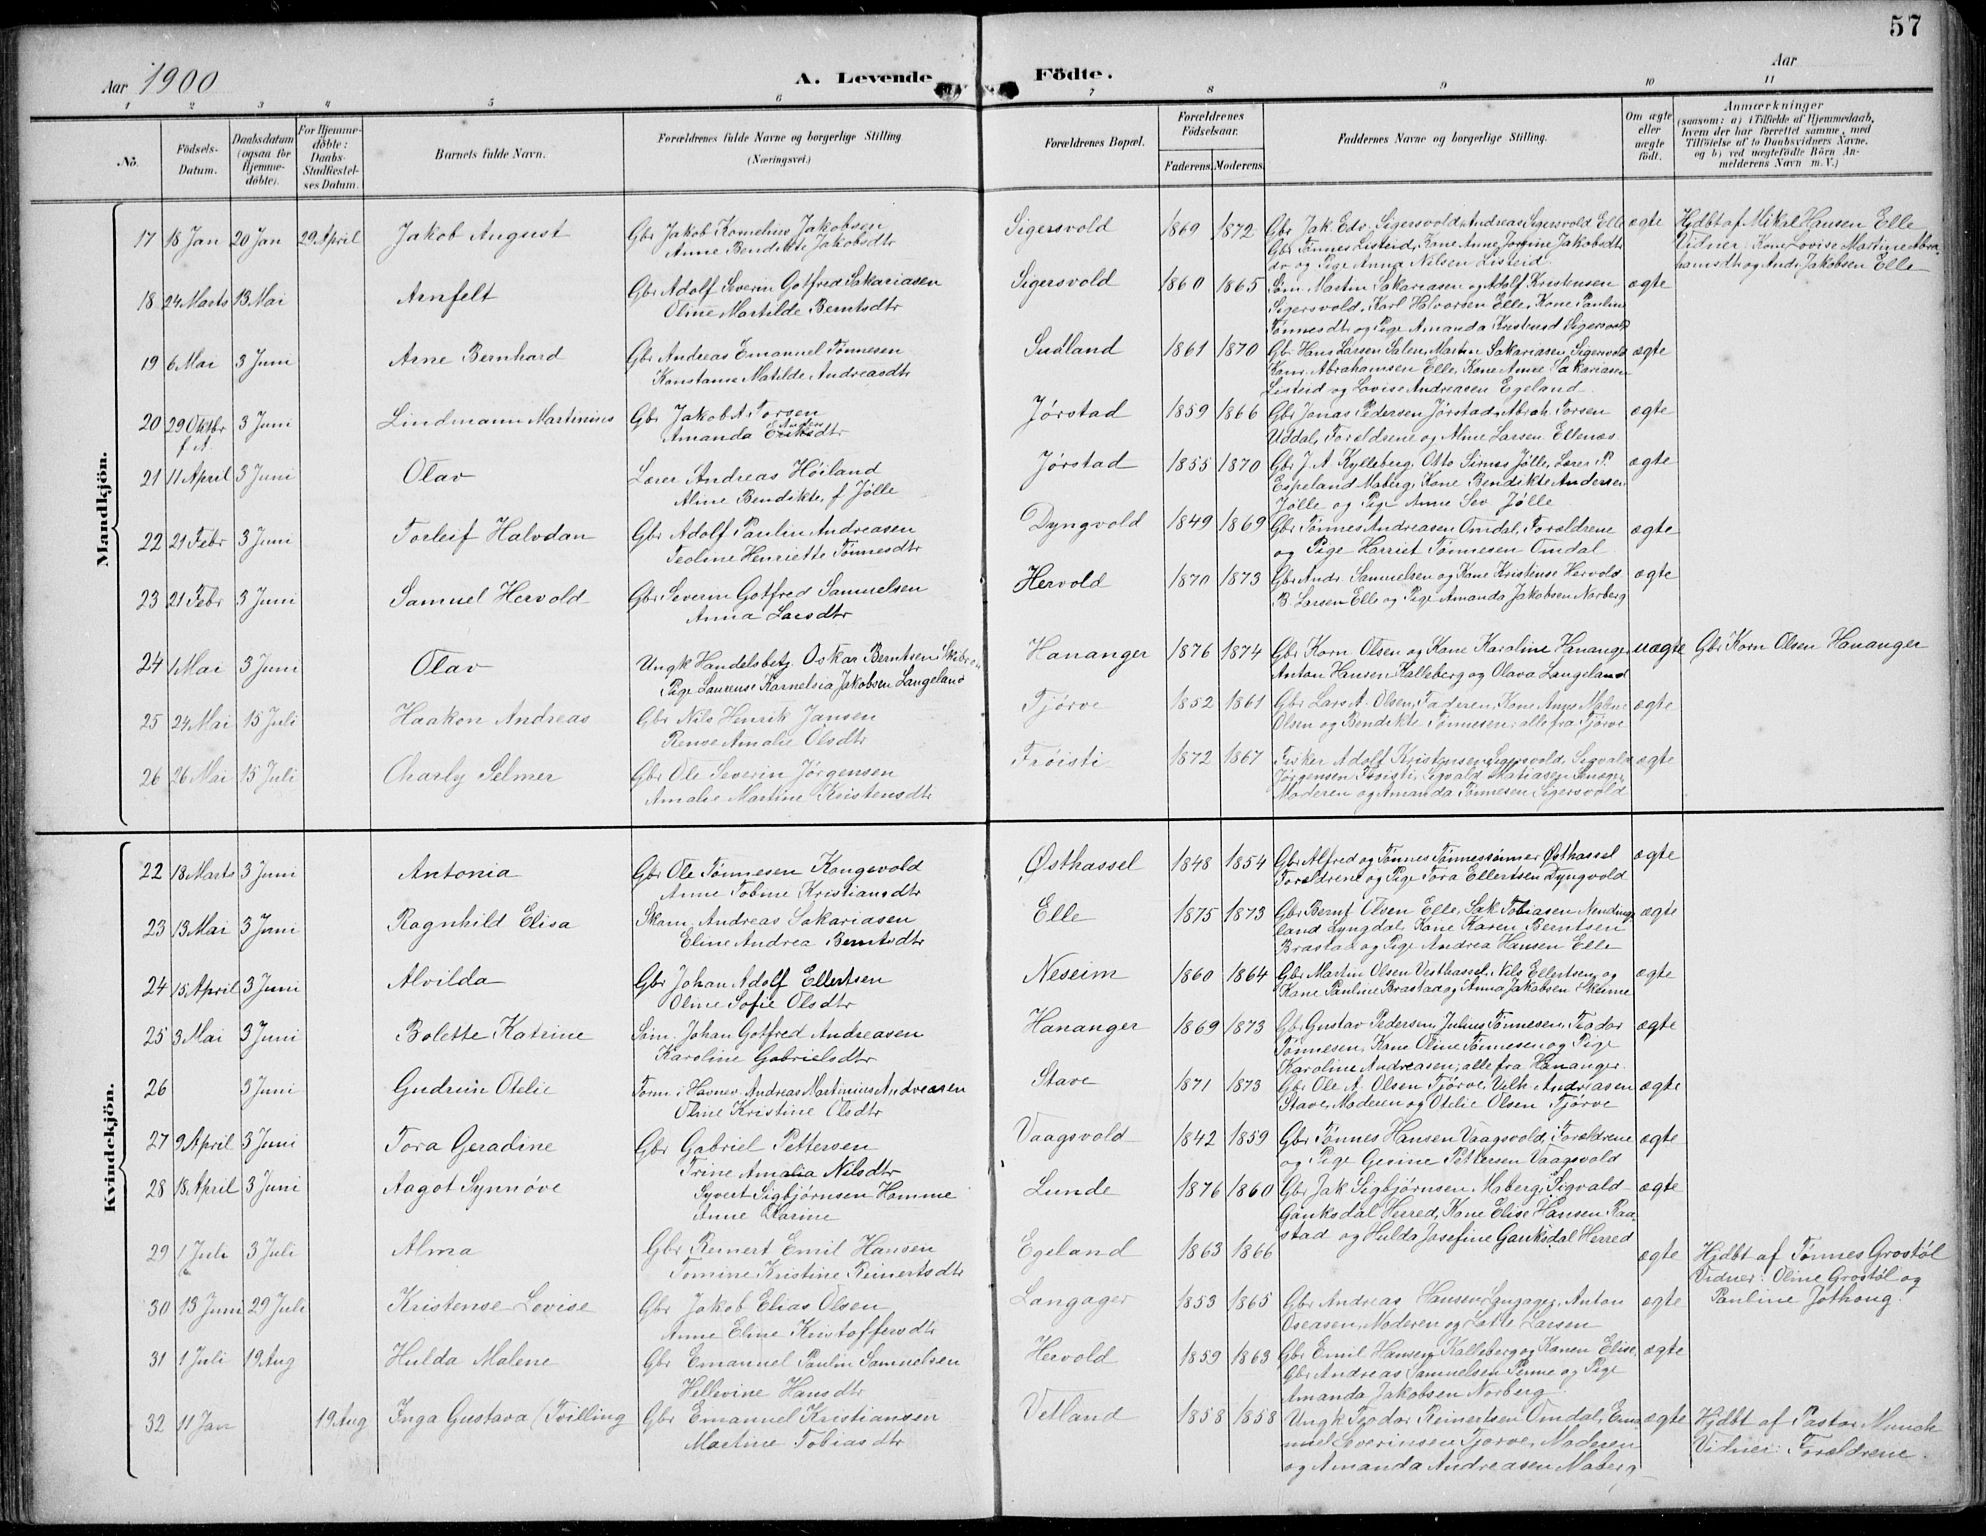 57
Aar 1900
A. Levende Födte.
Aar
1 2 3 4 5 6 7 8 9 10 11
No.
Födsels-Datum.
Daabsdatum (ogsaa for Hjemme-döbte).
For Hjemme-döbte: Daabs-Stadfæstel-ses Datum.
Barnets fulde Navn.
Forældrenes fulde Navne og borgerlige Stilling (Næringsvei.)
Forældrenes Bopæl.
Forældrenes Födselsaar.
Faderens. Moderens.
Faddernes Navne og borgerlige Stilling.
Om ægte eller uægte födt.
Anmærkninger
(saasom: a) i Tilfælde af Hjemmedaab, hvem der har forrettet samme, med Tilföielse af to Daabsvidners Navne, og b) ved uægtefödte Börn An-melderens Navn m. V.)
Mandkjön.
17 18 Jan 20 Jan 29 April Jakob August Gbr Jakob Kornelius Jakobsen Sigersvold 1869 1872 Gbr Jak. Edv. Sigersvold, Andreas Sigersvold Elle ægte Hjdbt af Mikal Hansen Elle
Anne Bendikte Jakobsdtr Gbr Tønnes Listeid, Kone Anne Jorgine Jakobsdtr Vidner: Kone Lovise Martine Abra-
do og Pige Anna Nilsen Listeid. hamsdt og Andr. Jakobsen Elle
18 24 Marts 13 Mai Arnfelt Gbr Adolf Severin Gotfred Sakariasen Sigersvold 1860 1865 Søm. Martin Sakariasen og Adolf Kristensen ægte
Oline Martilde Berntsdtr Sigersvold, Karl Halvorsen Elle, Kone Pauline
Tønnesdtr og Pige Amanda Kristensd Sigersvold
19 6 Mai 3 Juni Arne Bernhard Gbr Andreas Emanuel Tønnesen Sudland 1861 1870 Gbr Hans Larsen Salen, Martin Sakariasen, Sigersvold ægte
Konstanse Matilde Andreasdtr Abrahamsen Elle, Kone Anne Sakariasen
Listeid og Lovise Andreasen Egeland.
20 29 Oktbr f.A. 3 Juni Lindmann Martinius Gbr Jakob A. Torsen Jørstad 1859 1866 Gbr Jonas Pedersen Jørstad, Abrah. Torsen ægte
Amanda Eriksdtr Uddal, Forældrene og Aline Larsen Ellenæs
21 11 April 3 Juni Olav Lærer Andreas Høiland Jørstad 1855 1870 Gbr J. A. Kylleberg, Otto Sirnes Jølle, Lærer P. ægte
Aline Bendikte, f Jølle Espeland Maberg, Kone Bendikte Andersen
Jølle og Pige Anne Sev Jølle
22 21 Febr 3 Juni Torleif Halvdan Gbr Adolf Paulin Andreasen Dyngvold 1849 1869 Gbr Tønnes Andreasen Omdal, Forældrene ægte
Teoline Henriette Tønnesdtr og Pige Harriet Tønnesen Omdal
23 21 Febr 3 Juni Samuel Hervold Gbr Severin Gotfred Samuelsen Hervold 1870 1873 Gbr Andr. Samuelsen og Kone Kristense Hervold ægte
Anna Larsdtr B. Larsen Elle og Pige Amanda Jakobsen Norberg
24 1 Mai 3 Juni Olav Ungk Handelsbetj. Oskar Berntsen Hananger 1876 1874 Gbr Korn Olsen og Kone Karoline Hananger uægte Gbr Korn Olsen Hananger
Pige Laurense Karnelsia Jakobsen Langeland Anton Hansen Kalleberg og Olava Langeland
25 24 Mai 15 Juli Haakon Andreas Gbr Nils Henrik Jansen Tjørve 1852 1861 Gbr Lars A. Olsen, Faderen, Kone Anne Malene ægte
Rense Amalie Olsdtr Olsen og Bendikte Tønnesen; alle fra Tjørve
26 26 Mai 15 Juli Charly Selmer Gbr Ole Severin Jørgensen Frøisti 1872 1867 Fisker Adolf Kristensen Sigersvold, Sigvald ægte
Amalie Martine Kristensdtr Jørgensen Frøisti, Sigvald Matiasen
Moderen og Amanda Tønnesen Sigersvold
Kvindekjön.
22 18 Marts 3 Juni Antonia Gbr Ole Tønnesen Kongevold Østhassel 1848 1854 Gbr Alfred og Tønnes Tønnessønner Østhassel ægte
Anne Tobine Kristiansdtr Forældrene og Pige Tora Ellertsen Dyngvold
23 13 Mai 3 Juni Ragnhild Elisa Skom. Andreas Sakariasen Elle 1875 1873 Gbr Bernt Olsen Elle, Sak Tobiasen Nendinge- ægte
Eline Andrea Berntsdtr land Lyngdal, Kone Karen Berntsen
Brastad og Pige Andrea Hansen Elle
24 15 April 3 Juni Alvilda Gbr Johan Adolf Ellertsen Neseim 1860 1864 Gbr Martin Olsen Vesthassel, Nils Ellertsen, og ægte
Oline Sofie Olsdtr Kone Pauline Brastad og Anna Jakobsen Skeime
25 3 Mai 3 Juni Bolette Katrine Søm. Johan Gotfred Andreasen Hananger 1869 1873 Gbr Gustav Pedersen, Julius Tønnesen, Teodor ægte
Karoline Gabrielsdtr Tønnesen, Kone Oline Tønnesen og Pige
Karoline Andreasen; alle fra Hananger
26 3 Juni Gudrun Otelie Tøm. i Havnev. Andreas Martinius Andreasen Stave 1871 1873 Gbr Ole A. Olsen Tjørve, Vilh Andreasen ægte
Oline Kristine Olsdtr Stave, Moderen og Otelie Olsen Tjørve
27 9 April 3 Juni Tora Geradine Gbr Gabriel Pettersen Vaagsvold 1842 1859 Gbr Tønnes Hansen Vaagsvold, Forældrene ægte
Trine Amalia Nilsdtr og Pige Gesine Pettersen Vaagsvold
28 18 April 3 Juni Aagot Synnøve Syvert Sigbjørnsen Hamme Lunde 1876 1860 Gbr Jak Sigbjørnsen Maberg, Sigvald ægte
Anne Karine Gauksdal Herred, Kone Elise Hansen Raa-
stad og Hulda Josefine Gauksdal Herred
29 1 Juli 3 Juli Alma Gbr Reinert Emil Hansen Egeland 1863 1866 ægte Hjdbt af Tønnes Grostøl
Tomine Kristine Reinertsdtr Vidner: Oline Grostøl og
Pauline Jothong.
30 13 Juni 29 Juli Kristense Lovise Gbr Jakob Elias Olsen Langager 1853 1865 Gbr Andreas Hansen Langager, Anton ægte
Anne Eline Kristoffersdtr Oseasen, Moderen og Lotte Larsen
31 1 Juli 19 Aug Hulda Malene Gbr Emanuel Paulin Samuelsen Hervold 1859 1863 Gbr Emil Hansen Kalleberg og Konen Elise. ægte
Hellevine Hansdtr Gbr Andreas Samuelsen Penne og Pige
Amanda Jakobsen Norberg
32 11 Jan 19 Aug Inga Gustava (Tvilling Gbr Emanuel Kristiansen Vetland 1858 1858 Ungk Teodor Reinertsen Omdal, Ema- ægte Hjdbt af Pastor Munch
Martine Tobiasdtr nuel Severinsen Tjørve, Moderen Vidner: Forældrene.
og Amanda Andreasen Maberg